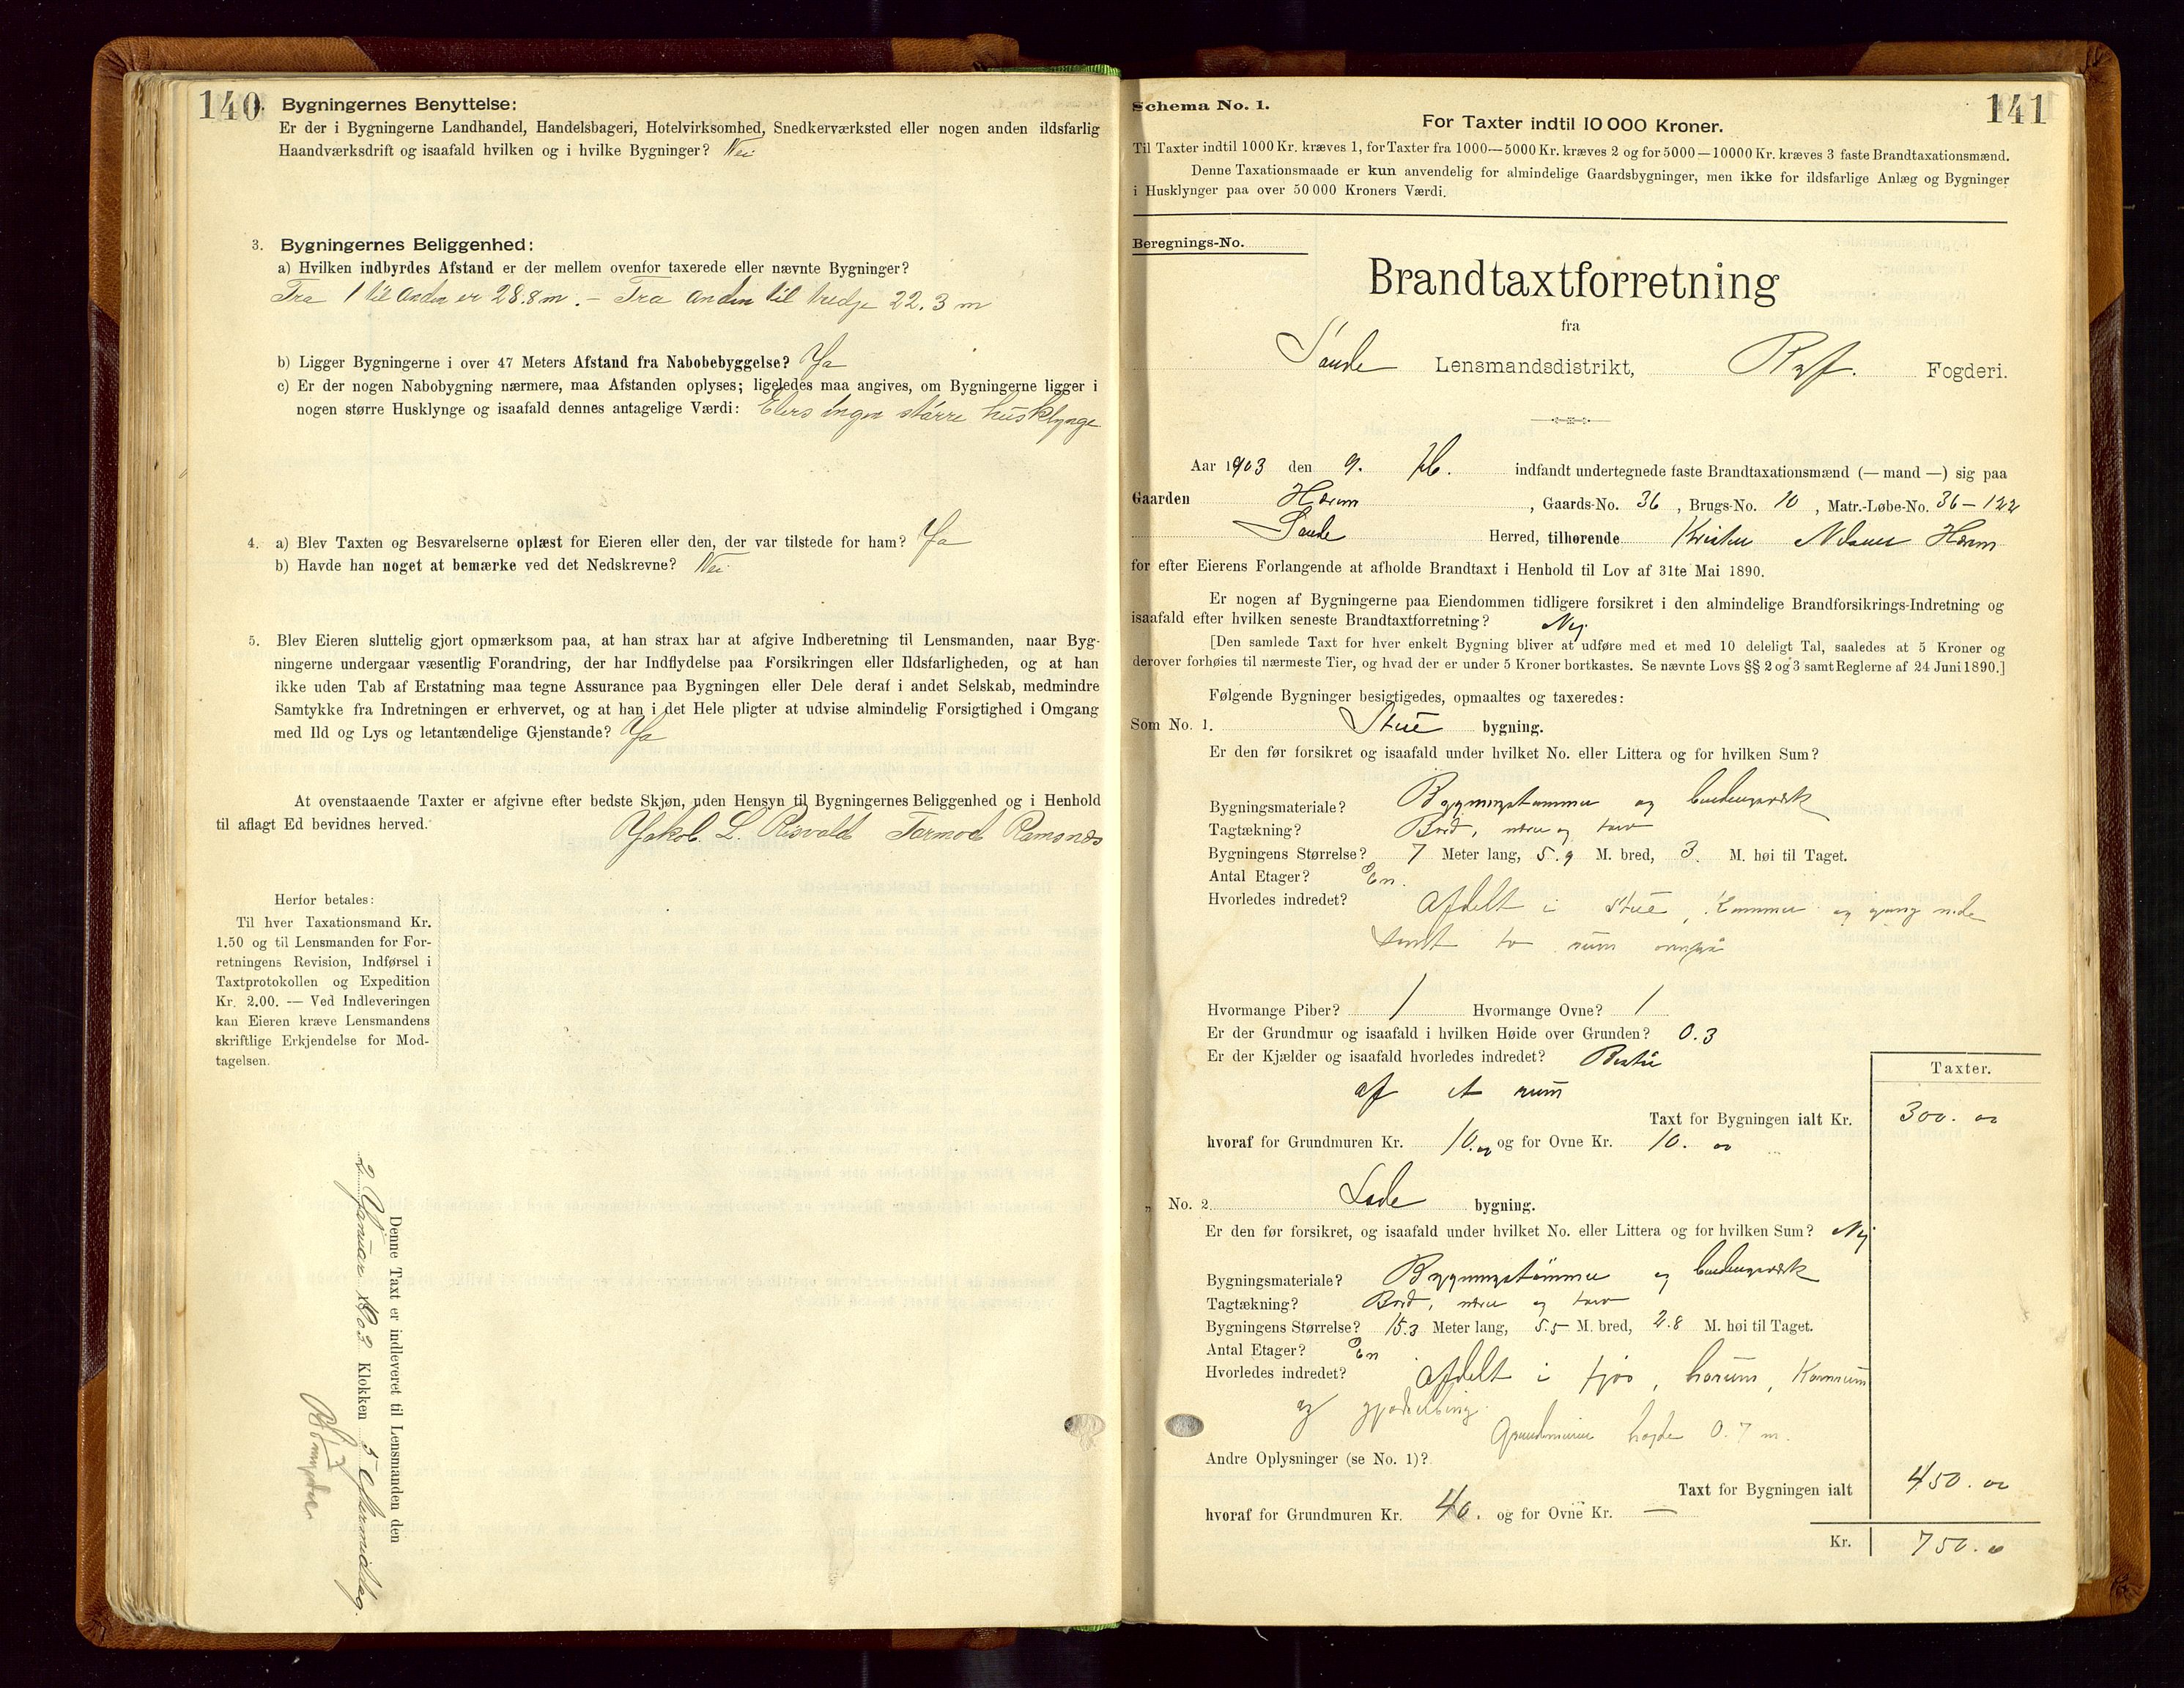 140
Bygningernes Benyttelse:
Er der i Bygningerne Landhandel, Handelsbageri, Hotelvirksomhed, Snedkerværksted eller nogen anden ildsfarlig
Haandværksdrift og isaafald hvilken og i hvilke Bygninger? Nei
3. Bygningernes Beliggenhed:
a) Hvilken indbyrdes Afstand er der mellem ovenfor taxerede eller nævnte Bygninger?
Fra 1 til anden er 28.8 m. – Fra anden til tredje 22.3 m
b) Ligger Bygningerne i over 47 Meters Afstand fra Nabobebyggelse? Ja
c) Er der nogen Nabobygning nærmere, maa Afstanden oplyses; ligeledes maa angives, om Bygningerne ligger i
nogen større Husklynge og isaafald dennes antagelige Værdi: Elers ingen større husklynge
4. a) Blev Taxten og Besvarelserne oplæst for Eieren eller den, der var tilstede for ham? Ja
b) Havde han noget at bemærke ved det Nedskrevne? Nei
5. Blev Eieren sluttelig gjort opmærksom paa, at han strax har at afgive Indberetning til Lensmanden, naar Byg-
ningerne undergaar væsentlig Forandring, der har Indflydelse paa Forsikringen eller Ildsfarligheden, og at han
ikke uden Tab af Erstatning maa tegne Assurance paa Bygningen eller Dele deraf i andet Selskab, medmindre
Samtykke fra Indretningen er erhvervet, og at han i det Hele pligter at udvise almindelig Forsigtighed i Omgang
med Ild og Lys og letantændelige Gjenstande? Ja
At ovenstaaende Taxter er afgivne efter bedste Skjøn, uden Hensyn til Bygningernes Beliggenhed og i Henhold
til aflagt Ed bevidnes herved. Jakob L. Risvold Tormod Ramsnes
Herfor betales:
Til hver Taxationsmand Kr.
1.50 og til Lensmanden for For-
retningens Revision, Indførsel i
Taxtprotokollen og Expedition
Kr. 2.00. — Ved Indleveringen
kan Eieren kræve Lensmandens
skriftlige Erkjendelse for Mod-
tagelsen.
Denne Taxt er indleveret til Lensmanden den
2 Januar 1903 Klokken 5 Eftermiddag.
141
Schema No. 1.
For Taxter indtil 10 000 Kroner.
Til Taxter indtil 1000 Kr. kræves 1, for Taxter fra 1000—5000 Kr. kræves 2 og for 5000—10000 Kr. kræves 3 faste Brandtaxationsmænd.
Denne Taxationsmaade er kun anvendelig for almindelige Gaardsbygninger, men ikke for ildsfarlige Anlæg og Bygninger
i Husklynger paa over 50 000 Kroners Værdi.
Beregnings-No.
Brandtaxtforretning
fra
Sande Lensmandsdistrikt, Fogderi.
Aar 1903 den 9. indfandt undertegnede faste Brandtaxationsmænd (— mand —) sig paa
Gaarden Havm, Gaards-No. 36, Brugs-No. 10, Matr.-Løbe-No. 36 – 122
Sande Herred, tilhørende
for efter Eierens Forlangende at afholde Brandtaxt i Henhold til Lov af 31te Mai 1890.
Er nogen af Bygningerne paa Eiendommen tidligere forsikret i den almindelige Brandforsikrings-Indretning og
isaafald efter hvilken seneste Brandtaxtforretning? Nej
[Den samlede Taxt for hver enkelt Bygning bliver at udføre med et med 10 deleligt Tal, saaledes at 5 Kroner og
derover forhøies til nærmeste Tier, og hvad der er under 5 Kroner bortkastes. Se nævnte Lovs §§ 2 og 3 samt Reglerne af 24 Juni 1890.]
Følgende Bygninger besigtigedes, opmaaltes og taxeredes:
Som No. 1. Stue bygning.
Er den før forsikret og isaafald under hvilket No. eller Littera og for hvilken Sum?
Bygningsmateriale? Bygningstømmer og bindingsværk
Tagtækning? Bord, næver og torv
Bygningens Størrelse? 7 Meter lang, 5.9 M. bred, 3. M. høi til Taget.
Antal Etager? En.
Hvorledes indredet? Afdelt i Stue, Kammer og gang nede
samt to rum ovenpaa
Hvormange Piber? 1 Hvormange Ovne? 1
Er der Grundmur og isaafald i hvilken Høide over Grunden? 0.3
Er der Kjælder og isaafald hvorledes indredet?
af et rum
Taxter.
Taxt for Bygningen ialt Kr. 300. 00
hvoraf for Grundmuren Kr. 10. 00 og for Ovne Kr. 10. 00
" No. 2 Lade bygning.
Er den før forsikret, og isaafald under hvilket No. eller Littera og for hvilken Sum? Nej
Bygningsmateriale? Bygningstømmer og bindingsværk
Tagtækning? Bord, næver og torv
Bygningens Størrelse? 15.3 Meter lang, 5.5 M. bred, 2.8 M. høi til Taget.
Antal Etager? En
Hvorledes indredet? Afdelt i fjøs, hørum, Kornrum
og gjødselbing.
Grundmurens højde 0.7 m.
Andre Oplysninger (se No. 1)?
Taxt for Bygningen ialt 450. 00
hvoraf for Grundmuren Kr. 40. og for Ovne Kr. —
Kr. 750. 00